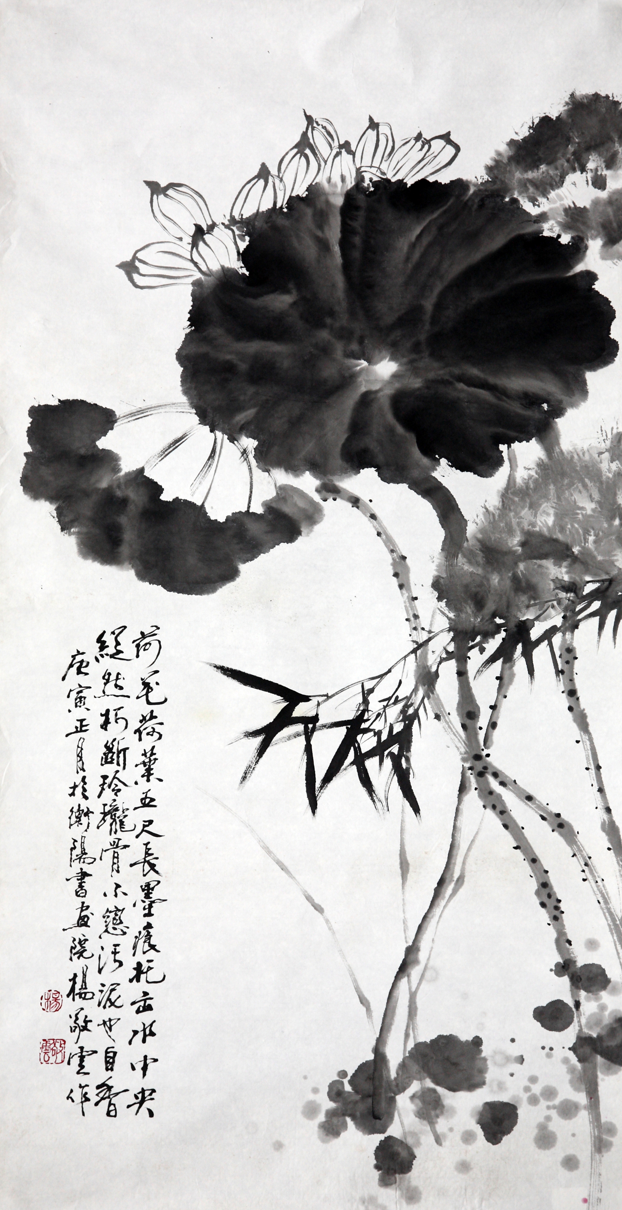 荷花荷葉五尺長墨痕托出水中央
縱然折斷玲瓏骨不戀污泥也自香
庚寅正月於衡陽書畫院楊敬雲作